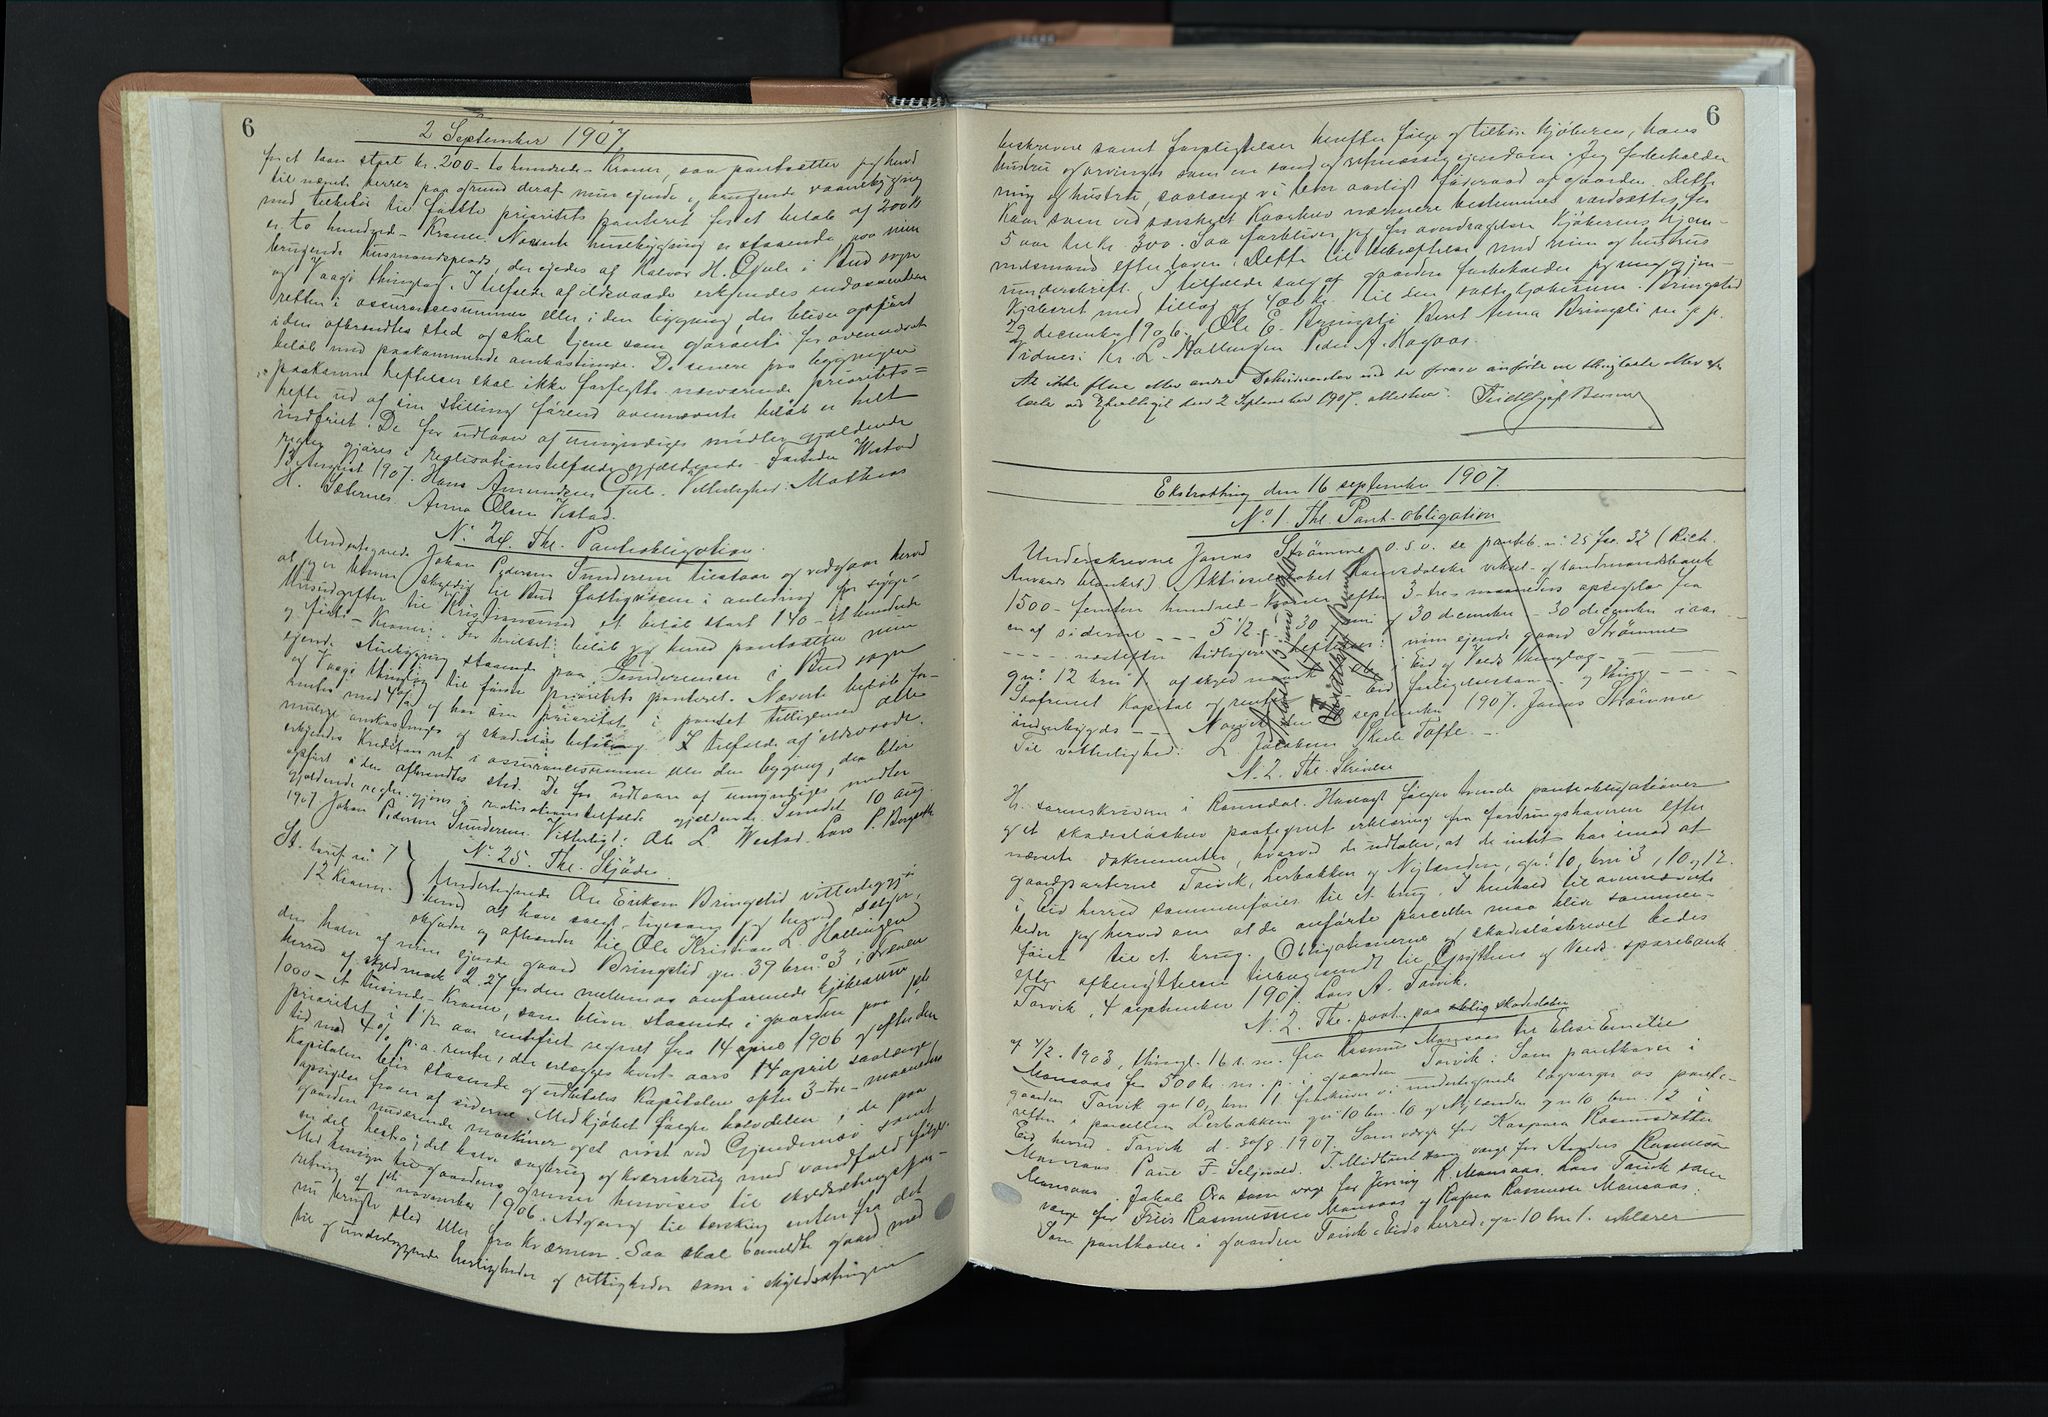 6
2 September 1907.
for et laan stort kr. 200 - to hundrede - Kroner, saa pantsætter jeg herved
til nævnte herrer paa grund deraf min eiende og brugende vaanebygning
med tilbehør til første prioritets panteret for et beløb af 200 kr
er to hundrede - Kroner. Nævnte husebygning er staaende paa min
brugende husmandsplads, der eiedes af Halvor H. Gule i Bud sogn
og Vaagø thinglag. I tilfælde af ildsvaade erkjendes indehaverens
retten i assurancesummen eller i den bygning, der bliver opført
i den afbrændtes sted og skal tjene som garanti for ovennævnte
beløb med paakommende omkostninger. De senere paa bygningen
paakomne heftelser skal ikke fortrænge nærværende prioritets=
hefte ud af sin stilling førend ovennævnte beløb er helt
indfriet. De for udlaan af umyndiges midler gjældende
regler gjøres i realisationstilfælde gjældende. Westad
13 August 1907. Hans Amundsen Gule. Vitterlighed: Mathias
H. Sæternes. Anna Olsen Vestad.
No. 24. Thl. Pantobligation.
Undertegnede Johan Pedersen Sunderem tilstaar og vedgaar herved
at jeg er bleven skyldig til Bud fattigvæsen i anledning for syge-
husudgifter til Kristiansund et beløb stort 140 - et hundrede
og firti - Kroner. For hvilket beløb jeg herved pantsætter min
eiende stuebygning staaende paa Sunderemen i Bud sogn
og Vaagø thinglag til første prioritets panteret. Nævnte beløb for-
rentes med 4 % og har sin prioritet i pantet tilligemed alle
mulige omkostninger og skadesløs betaling. I tilfælde af ildsvaade
erkjendes Kreditors ret i assurancesummen eller den bygning, der blir
opført i den afbrændtes sted. De for udlaan af umyndiges midler
gjældende regler gjøres i realisationstilfælde gjældende. Sundet 10 aug.
1907 Johan Pedersen Sunderem. Vitterlighed: Ole L. Westad. Lars P.
No. 25. Thl. Skjøde.
St. taxt n: 7
12 Kroner.
Undertegnede Ole Eriksen Bringslid vitterliggjør
herved at have solgt, ligesom jeg herved sælger,
skjøder og afhænder til Ole Kristian L. Hallingen
den halve af min eiende gaard Bringslid gn. 39 brn. 3 i
herred af skyld mark 2.27 for den mellem os omforenede kjøbesum
1000 - et tusinde - Kroner, som bliver staaende i gaarden paa 1ste
prioritet i 1 1/2 aar rentefrit regnet fra 14 april 1906 og efter den
tid med 4 % p. a. renter, der erlægges hvert aars 14 april saalænge
Kapitalen blir staaende og udbetales Kapitalen efter 3 - tre - maaneders
opsigelse fra en af siderne. Med kjøbet følger halvdelen i de paa
gaarden værende maskiner og et nøst ved Gjendemsø samt
en del i det halve sagbrug og kvernbrug med vandfald følger.
Med hensyn til gaardens grænser henvises til skyldsætningsfor-
retning af 1ste november 1906. Adgang til tærsking enten fra det
nu brugte sted eller fra kværnen. Saa skal bemeldte gaard med
til og underliggende herligheder og rettigheder som i skyldsætningen
6
beskrevne samt forpligtelser herefter følge og tilhøre Kjøberen, hans
hustru og arvinger som en sand og retmæssig eiendom. Jeg forbeholder
mig og hustru, saalænge vi lever aarligt føderaad af gaarden. Dette
Kaar som ved særskilt Kaarbrev nærmere bestemmes værdsættes for
5 aar til kr. 300. Saa forbliver jeg for overdragelsen Kjøberens hjem-
melsmand efter loven. Dette til bekræftelse med min og hustrus
underskrift. I tilfælde salg af gaarden forbeholder jeg mig gjen-
kjøbsret med tillæg af 400 kr. til den satte kjøbesum. Bringslid
29 december 1906. Ole E. Bringsli Beret Anna Bringsli m. p. p.
Vidner: Kr. L. Hallingen Peder A. Hagaas.
At ikke flere eller andre Dokumenter end de foran anførte er thinglæste eller af-
læste ved Extrathinget den 2 September 1907, attesteres.
Ekstrathing den 16 september 1907.
No. 1. Thl. Pant-obligation
Underskrevne Jonas Strømme o. s. v. se panteb. n. 25 fol. 32 (Rich.
Anvords blanket) Aktieselskabet Romsdalske veksel- og landmandsbank
1500 - femten hundred - Kroner efter 3 - tre - maaneders opsigelse fra
en af siderne - - - 5 1/2 - - 30 juni og 30 december - 30 december i aar
- - - - næstefter tidligere heftelser: min eiende gaard Strømme
gn: 12 brn 1 af skyld mark i Eid og Veø thinglag - - -
Saafremt Kapital og renter - - Eid forligelseskom. - og thing - -
indenbygds - - - september 1907. Jonas Strømme
Til vitterlighed: L. Jacobsen. Skule Tofte. -
No. 2. Thl. Skrivelse
Hr. sorenskriveren i Romsdal. Hoslagt følger tvende pantobligationer
og et skadesløsbrev paategnet erklæring fra fordringshaveren efter
nævnte dokumenter, hvorved de udtaler, at de intet har imod at
gaardparterne Torvik, Lerbakken og Nylænden, gn. 10, brn. 3, 10 og 12.
i Eid herred sammenføies til et brug. I henhold til ovennævnte
beder jeg herved om at de anførte parceller maa blive sammen-
føiet til et brug. Obligationerne og skadesløsbrevet bedes
efter afbenyttelsen tilbagesendt til Gryttens og Veø sparebank
Torvik, 4 september 1907. Lars A. Torvik.
No. 2. Thl. paat. paa skadesløsbr.
af 4/2. 1903, thingl. 16 s. m. fra Rasmus Monsaas til Elise Emilie
Monsaas for 500 kr. m. p. i gaarden Torvik: Som panthaver i
gaarden Torvik gn 10, brn 1. frafalder vi undertegnede lagværger os pante-
retten i parcellen Lerbakken gn 10 brn. 10 og Nylænden gn 10 brn. 12 i
Eid herred. Torvik d. 30/8. 1907. Som værge for Kaspara Rasmusdatter
Monsaas Paul F. Seljevold. T. Midtbust som værge for Anders Rasmussen
Monsaas. Jakob Ora som værge for Jenny R. Monsaas. Lars Torvik som
værge for Friis Rasmussen Monsaas og Ragna Rasmusse Monsaas.
Som panthaver i gaarden Torvik i Eids herred, gn 10 brn 1. erklærer